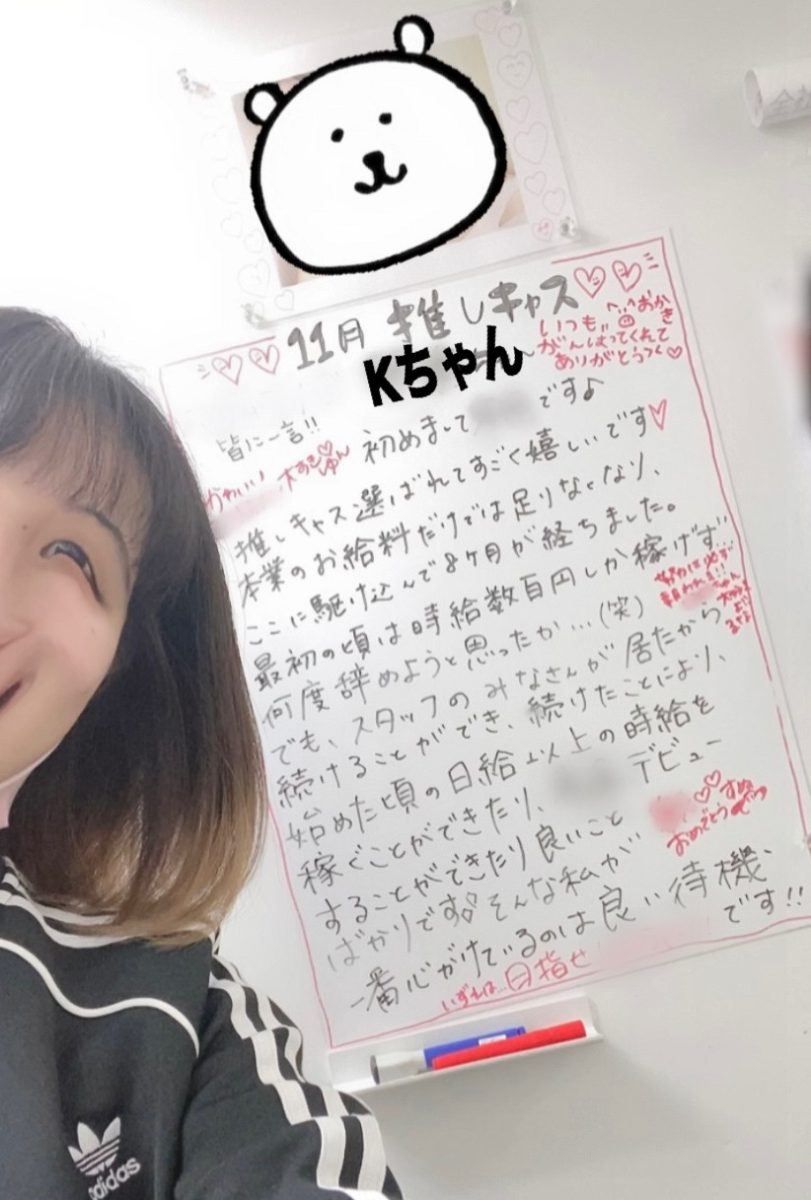 11月 推しキャス
Kちゃん
いつも
おかき
がんばってくれて
ありがとうっ
皆に一言!!
初めまして
です♪
かわいい
大すき
推しキャス選ばれてすごく嬉しいです
本業のお給料だけでは足りなくなり、
ここに駆け込んで8ヶ月が経ちました。
最初の頃は時給数百円しか稼げず
何度辞めようと思ったか…(笑)
努力は必ず
報われる!!
でも、スタッフのみなさんが居たから
続けることができ、続けたことにより、
始めた頃の日給以上の時給を
稼ぐことができたり、
デビュー
することができたり良いこと
おめでとう
ばかりです そんな私が
一番心がけているのは良い待機、
です!!
いずれは…目指せ
adidas